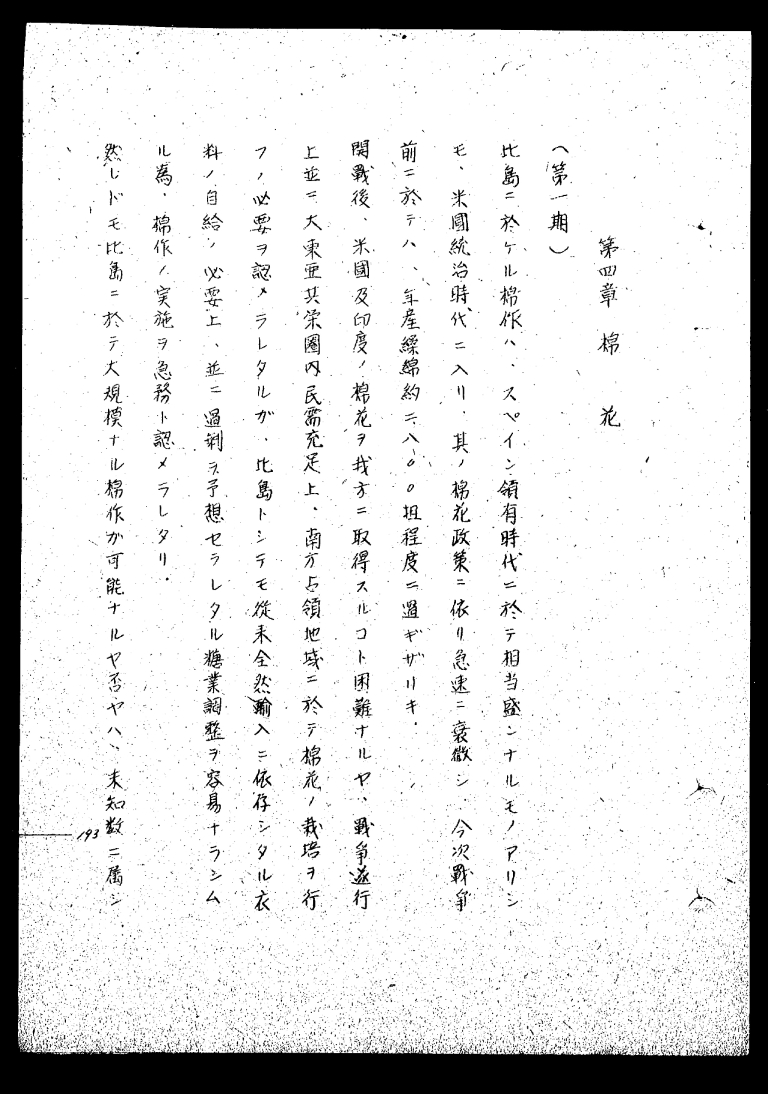 第四章 棉花
(第一期)
比島ニ於ケル棉作ハ、スペイン領有時代ニ於テ相当盛ンナルモノアリシ
モ、米國統治時代ニ入リ、其ノ棉花政策ニ依リ急速ニ衰微シ、今次戰爭
前ニ於テハ、年産繰綿約二八〇〇担程度ニ過ギザリキ.
開戰後、米國及印度ノ棉花ヲ我方ニ取得スルコト困難ナルヤ、戰爭遂行
上並ニ大東亜共栄圏内民需充足上、南方占領地域ニ於テ棉花ノ栽培ヲ行
フノ必要ヲ認メラレタルガ、比島トシテモ従来全然輸入ニ依存シタル衣
料ノ自給ノ必要上、並ニ過剰ヲ予想セラレタル糖業調整ヲ容易ナラシム
ル為、棉作ノ実施ヲ急務ト認メラレタリ.
然レドモ比島ニ於テ大規模ナル棉作ガ可能ナルヤ否ヤハ、未知数ニ属シ
193